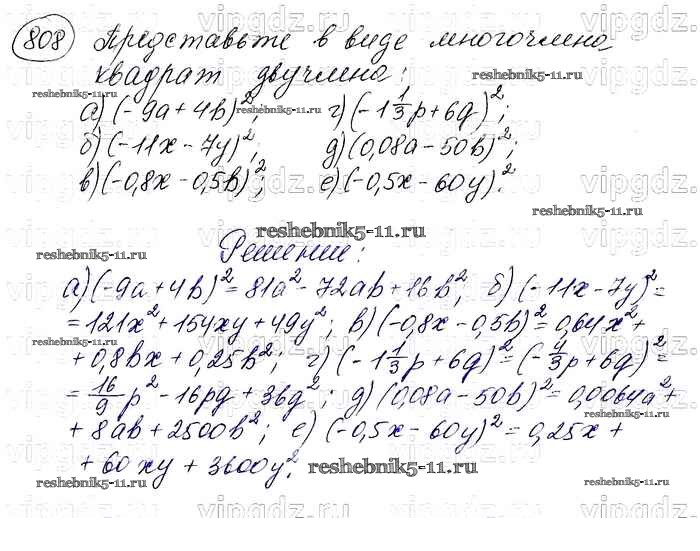 808 Представьте в виде многочлена
квадрат двучлена:
а) (-9a+4b)²; г) (-1 1/3 p+6q)²;
б) (-11x-7y)²; д) (0,08a-50b)²;
в) (-0,8x-0,5b)²; е) (-0,5x-60y)².
Решение:
а) (-9a+4b)²=81a²-72ab+16b²; б) (-11x-7y)²=
=121x²+154xy+49y²; в) (-0,8x-0,5b)²=0,64x²+
+0,8bx+0,25b²; г) (-1 1/3 p+6q)²=(-4/3 p+6q)²=
=16/9 p²-16pq+36q²; д) (0,08a-50b)²=0,0064a²+
+8ab+2500b²; е) (-0,5x-60y)²=0,25x+
+60xy+3600y².
vipgdz.com
reshebnik5-11.ru